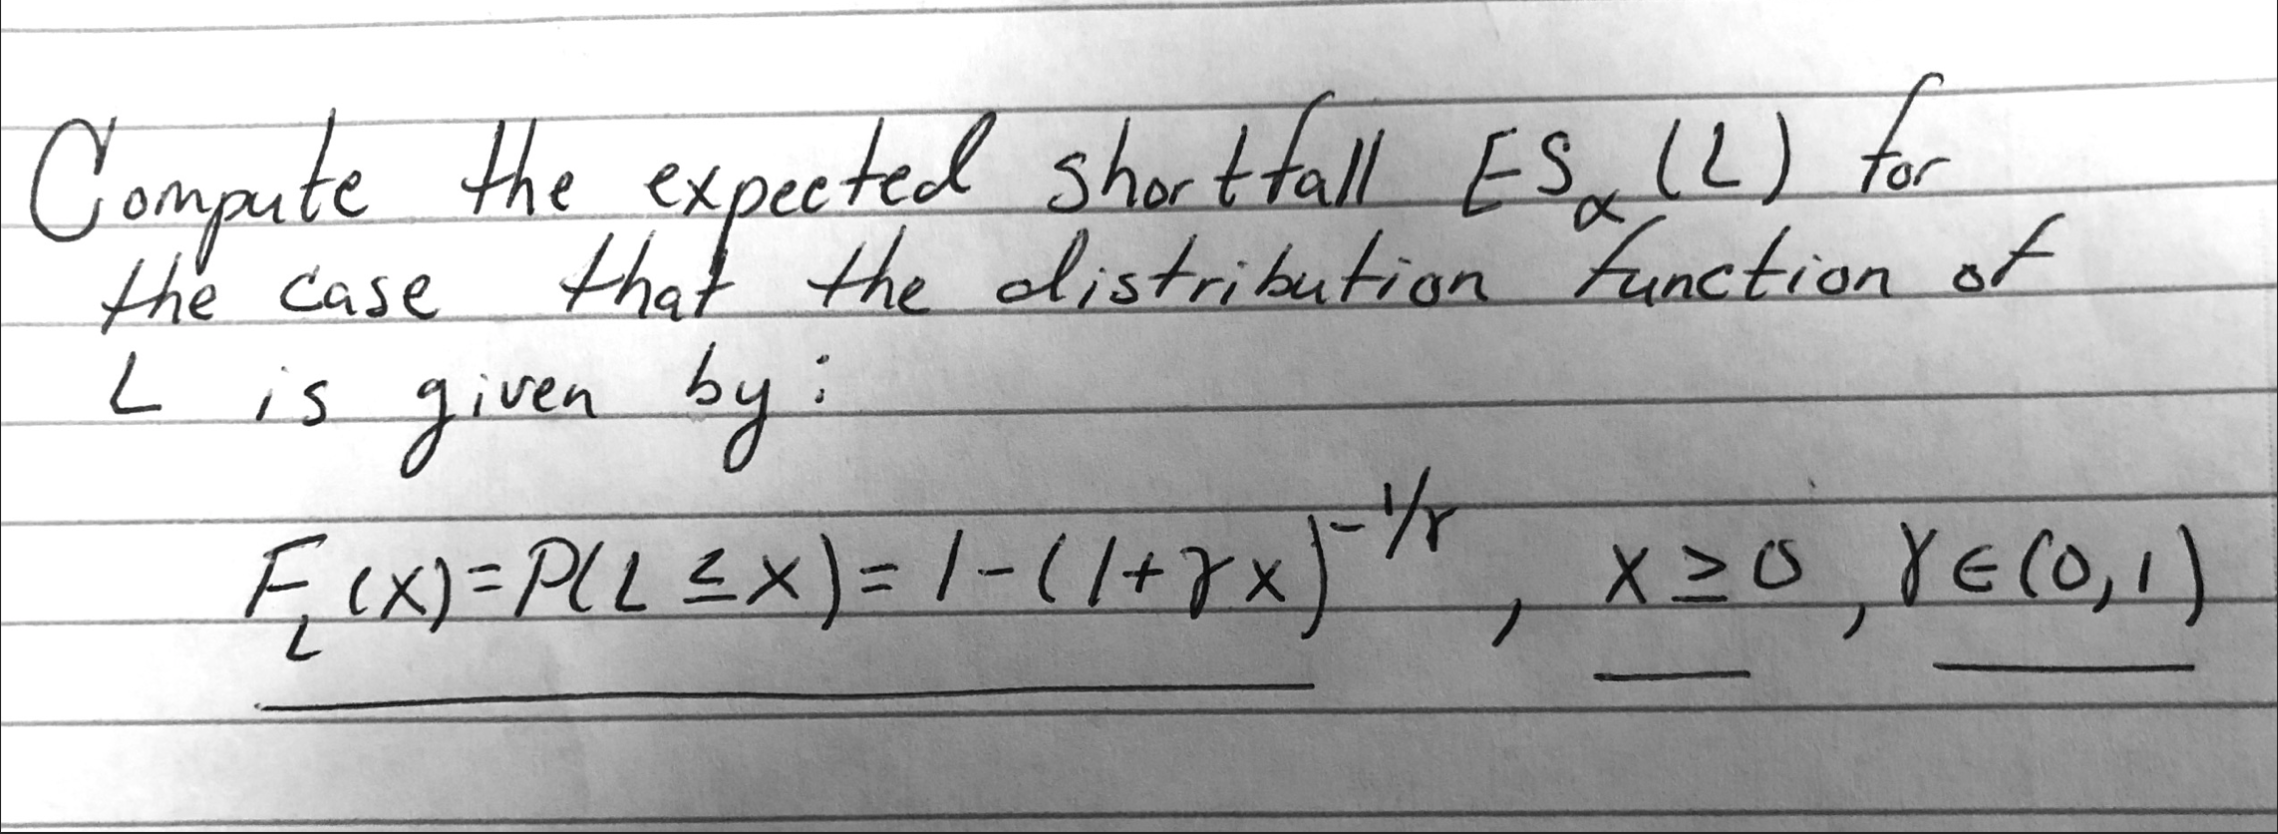 Compute the expected shortfall ES_α(L) for
the case that the distribution function of
L is given by:
F_L(x)=P(L≤x)=1-(1+γx)^{-1/γ}, x≥0, γ∈(0,1)